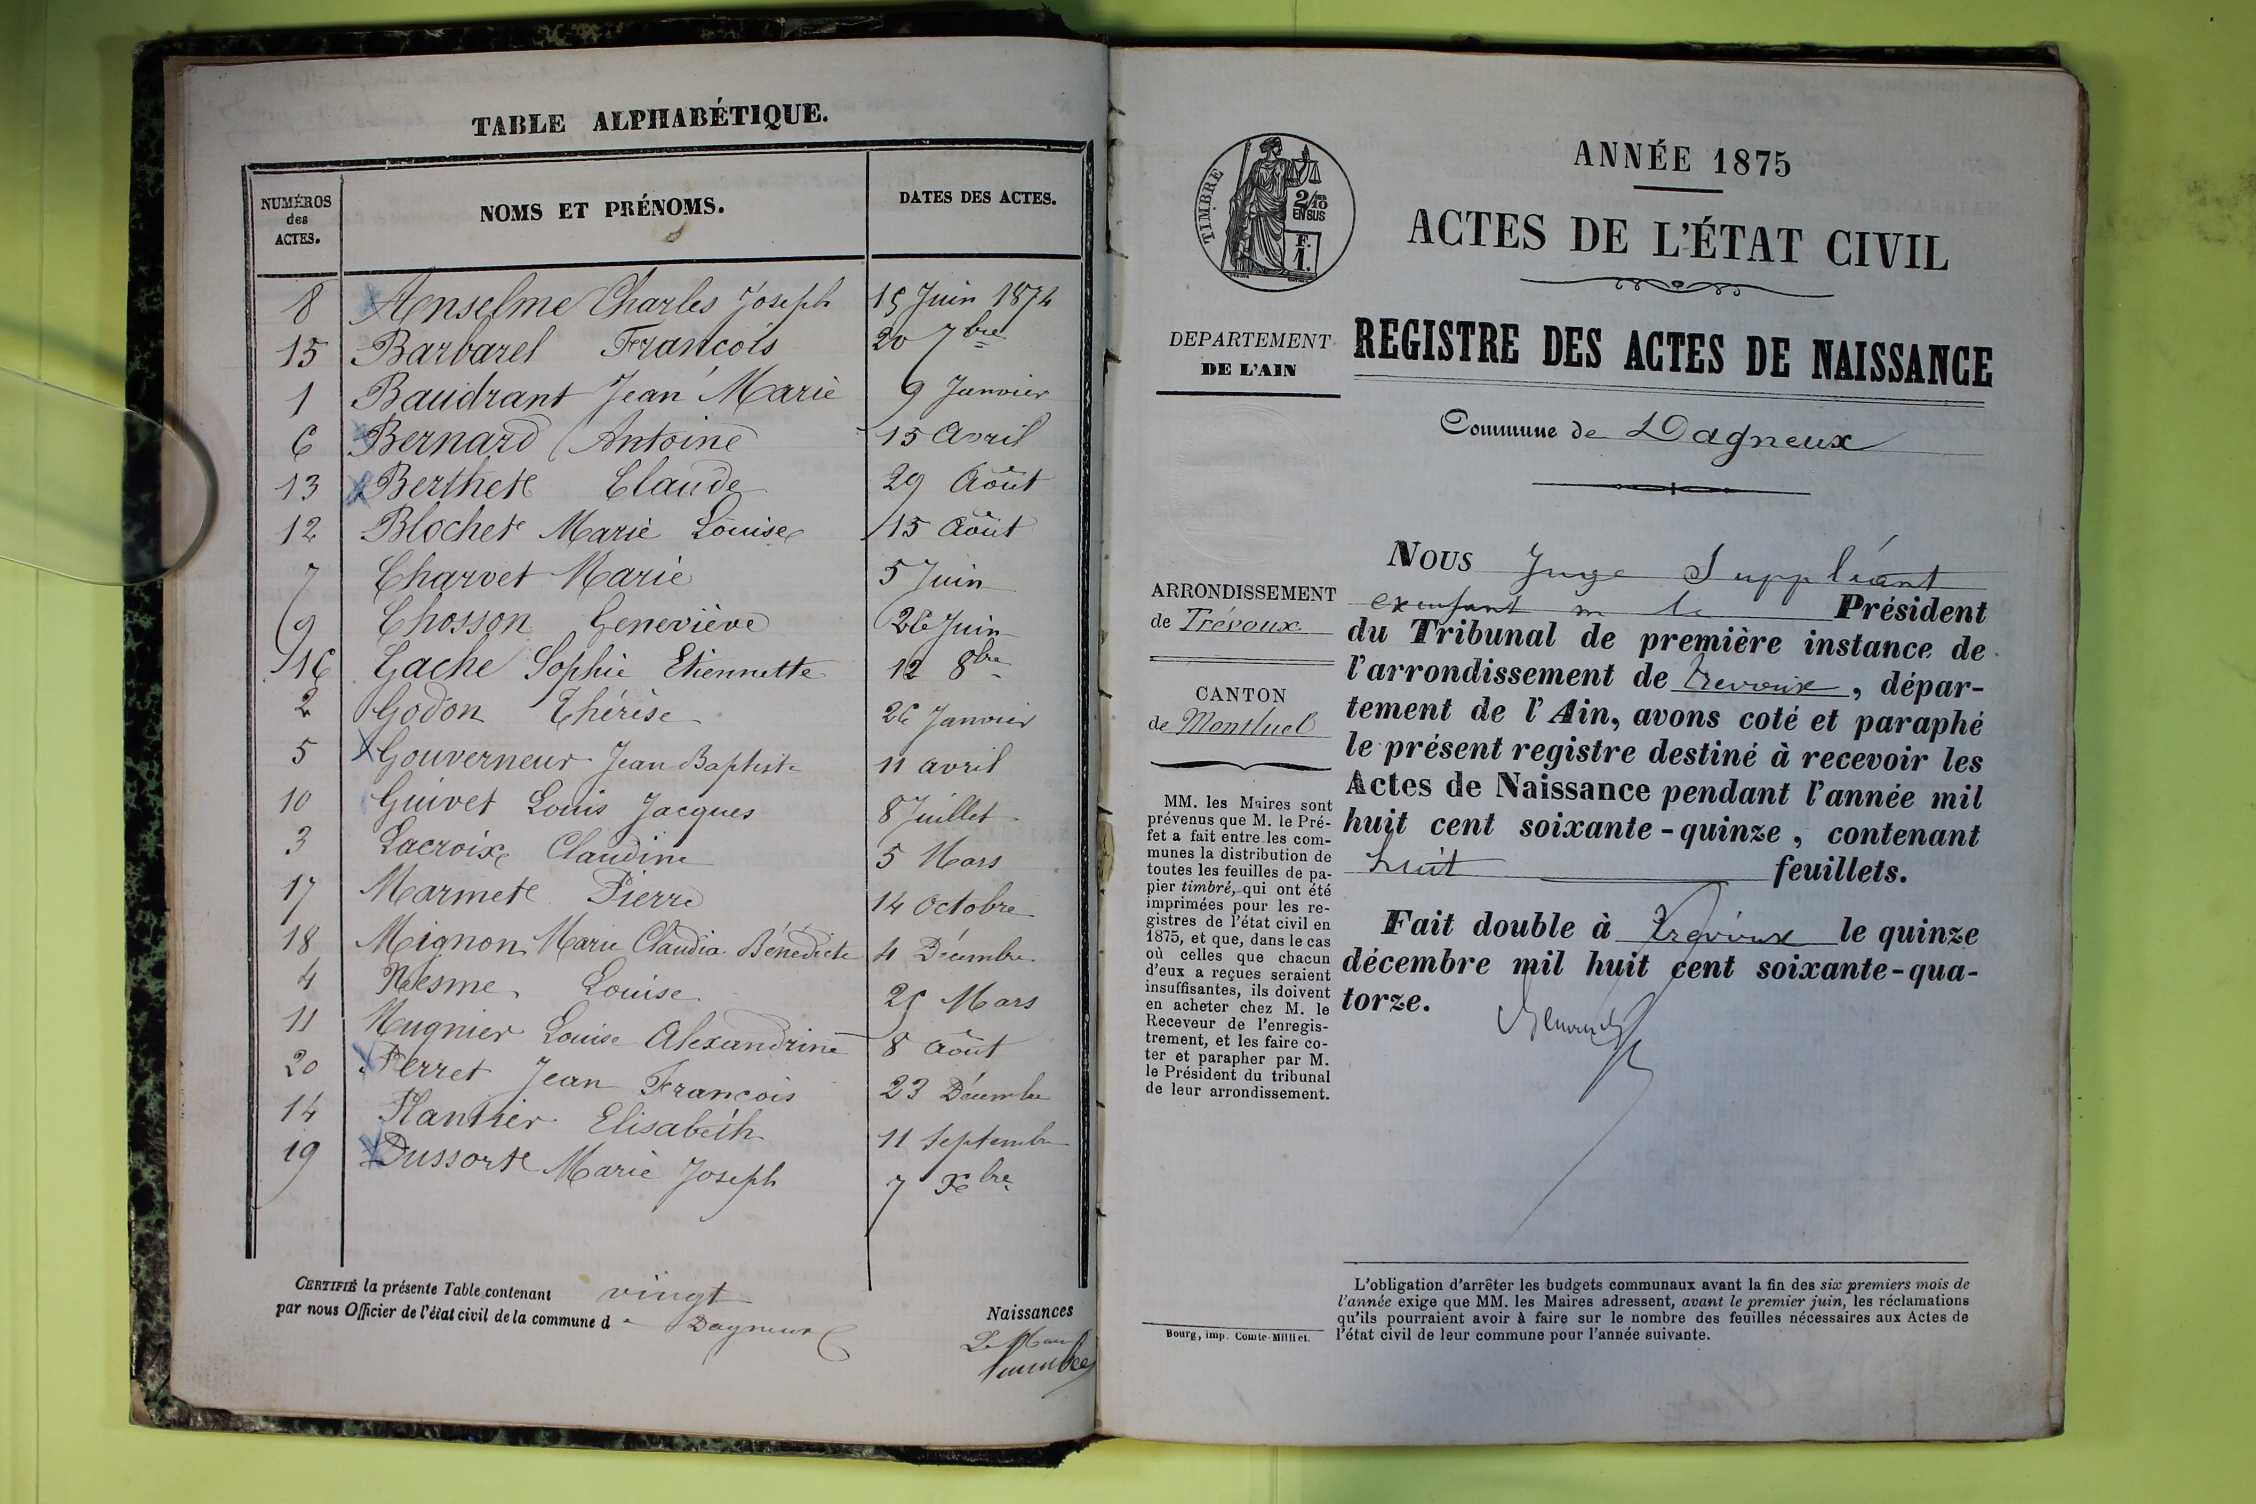 TABLE ALPHABÉTIQUE.
NUMÉROS des ACTES. NOMS ET PRÉNOMS. DATES DES ACTES.
8 Anselme Charles Joseph 15 Juin 1874
15 Barbarel François 20 7bre
1 Baudrant Jean Marie 9 Janvier
6 Bernard Antoine 15 Avril
13 Berthet Claude 29 Août
12 Blochet Marie Louise 15 Août
7 Charvet Marie 5 Juin
9 Chosson Geneviève 26 Juin
16 Gache Sophie Etiennette 12 8bre
2 Godon Thérèse 26 Janvier
5 Gouverneur Jean Baptiste 11 avril
10 Guivet Louis Jacques 8 Juillet
3 Lacroix Claudine 5 Mars
17 Marmet Pierre 14 Octobre
18 Mignon Marie Claudia Bénédicte 4 Décembre
4 Nesme Louise 25 Mars
11 Mugnier Louise Alexandrine 8 Août
20 Perret Jean François 23 Décembre
14 Plantier Elisabeth 11 Septembre
19 Dussort Marie Joseph 7 Xbre
CERTIFIÉ la présente Table contenant vingt Naissances
par nous Officier de l'état civil de la commune de Dagneux
Le Maire
TIMBRE
2/10 EN SUS
F. 1.
ANNÉE 1875
ACTES DE L'ÉTAT CIVIL
DEPARTEMENT
DE L'AIN
REGISTRE DES ACTES DE NAISSANCE
Commune de Dagneux
ARRONDISSEMENT
de Trévoux
CANTON
de Montluel
MM. les Maires sont
prévenus que M. le Pré-
fet a fait entre les com-
munes la distribution de
toutes les feuilles de pa-
pier timbré, qui ont été
imprimées pour les re-
gistres de l'état civil en
1875, et que, dans le cas
où celles que chacun
d'eux a reçues seraient
insuffisantes, ils doivent
en acheter chez M. le
Receveur de l'enregis-
trement, et les faire co-
ter et parapher par M.
le Président du tribunal
de leur arrondissement.
Nous Juge Suppléant
Président
du Tribunal de première instance de
l'arrondissement de Trevoux, dépar-
tement de l'Ain, avons coté et paraphé
le présent registre destiné à recevoir les
Actes de Naissance pendant l'année mil
huit cent soixante-quinze, contenant
huit feuillets.
Fait double à Trévoux le quinze
décembre mil huit cent soixante-qua-
torze.
Bourg, imp. Comte-Milliet.
L'obligation d'arrêter les budgets communaux avant la fin des six premiers mois de
l'année exige que MM. les Maires adressent, avant le premier juin, les réclamations
qu'ils pourraient avoir à faire sur le nombre des feuilles nécessaires aux Actes de
l'état civil de leur commune pour l'année suivante.